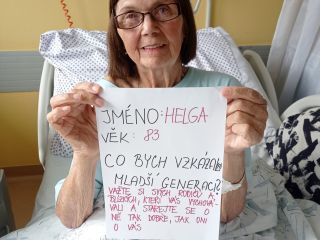 JMÉNO: HELGA
VĚK: 83
CO BYCH VZKÁZALA
MLADŠÍ GENERACI:
VAŽTE SI SVÝCH RODIČŮ A
BLÍZKÝCH, KTEŘÍ VÁS VYCHOVÁ-
VALI A STAREJTE SE O
NĚ TAK DOBŘE, JAK ONI
O VÁS